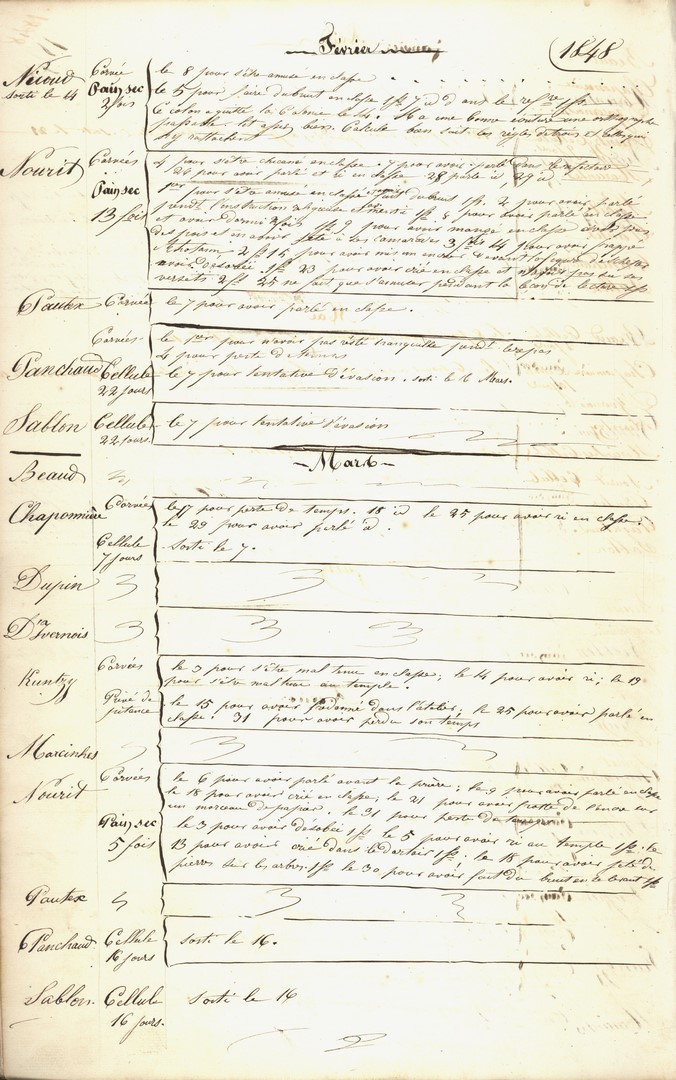 Février
1848
Nicoud Corvée le 8 pour s'être amusé en classe
sorti le 14 Pain sec 2 fois le 5 pour faire du bruit en classe 1 fs 7 id
le colon a quitté la Carme le 14. Il a une bonne
passable lit assez bien. Calcule bien suit les règles de trois et celles qui
s'y rattachent
Nourit Corvées 4 pour s'être chicané en classe. 7 pour avoir parlé
24 pour avoir parlé et ri en classe 28 parlé id 29 id
Pain sec 13 fois 1er pour s'être amusé en classe et fait du bruit 1 f. 2 pour avoir parlé
pendt l'instruction religieuse et menti 1 fs 8 pour avoir parlé en classe
et avoir dormi 2 fois 9 pour avoir mangé en classe
des pois et en avoir jeté à ses camarades 3 fois 14 pour avoir frappé
2 fs 16 pour avoir mis un
avoir désobéi 1 fs 23 pour avoir crié en classe et
versets 2 fs 25 ne fait que s'amuser pendant la leçon de lecture 1 fs
Pautex Corvée le 7 pour avoir parlé en classe.
Corvées le 1er pour n'avoir pas resté tranquille pendt le repas
4 pour perte de
Panchaud Cellule 22 jours le 7 pour tentative d'évasion. sorti le 16 Mars.
Sablon Cellule 22 jours. le 7 pour tentative d'évasion
Mars
Beaud
Chaponnière Corvées le 17 pour perte de temps. 18 id le 25 pour avoir ri en classe;
le 29 pour avoir parlé id.
Cellule 7 jours Sorti le 7.
Dupin
D'Ivernois
Kuntzy Corvées le 3 pour s'être mal tenu en classe; le 14 pour avoir ri; le 19
pour s'être mal tenu au temple.
Privé de pitance le 15 pour avoir fredonné dans l'atelier; le 25 pour avoir parlé en
classe. 31 pour avoir perdu son temps
Marcinhes
Nourit Corvées le 6 pour avoir parlé avant la prière; le 9 pour avoir parlé en classe
le 18 pour avoir crié en classe; le 21 pour avoir de l'encre sur
un morceau de papier. le 31 pour perte de temps
Pain sec 5 fois le 3 pour avoir désobéi 1 fs le 5 pour avoir ri au temple 1 fs; le
13 pour avoir crié dans le dortoir 1 fs; le 18 pour avoir jeté des
pierres sur les arbres 1 fs le 30 pour avoir fait du bruit en se levant 1 fs
Pautex
Panchaud Cellule 16 jours sorti le 16.
Sablon. Cellule 16 jours. sorti le 16